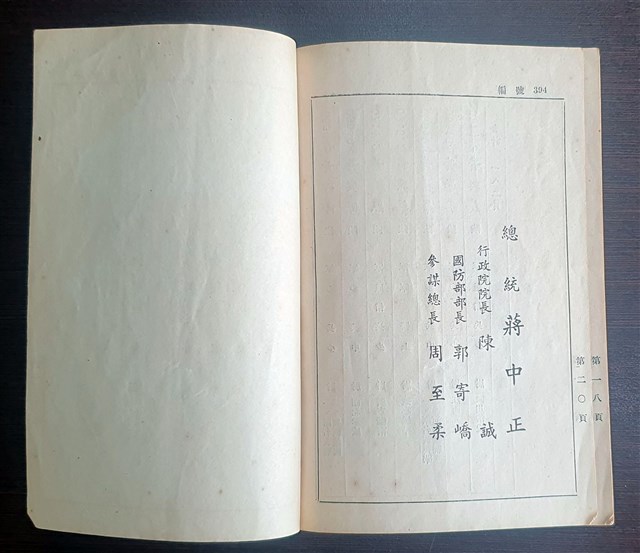 編號 394
總統蔣中正
行政院院長陳誠
國防部部長郭寄嶠
參謀總長周至柔
第一八頁
第二〇頁